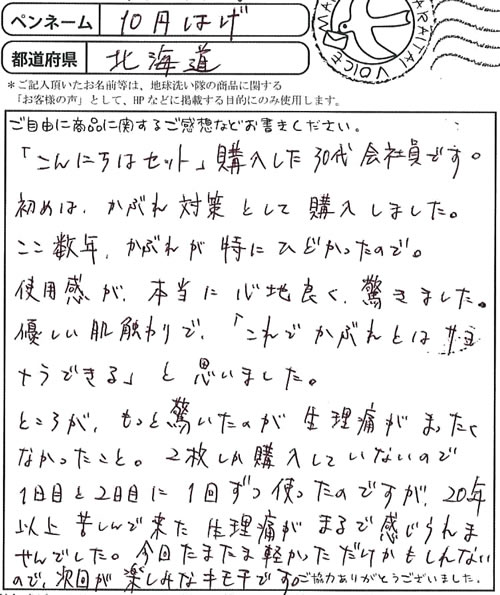 ペンネーム 10円はげ
都道府県 北海道
＊ご記入頂いたお名前等は、地球洗い隊の商品に関する
「お客様の声」として、HPなどに掲載する目的にのみ使用します。
ご自由に商品に関するご感想などお書きください。
「こんにちはセット」購入した30代会社員です。
初めは、かぶれ対策として購入しました。
ここ数年、かぶれが特にひどかったので。
使用感が、本当に心地良く、驚きました。
優しい肌触りで、「これでかぶれとはサヨ
ナラできる」と思いました。
ところが、もっと驚いたのが生理痛がまったく
なかったこと。2枚しか購入していないので
1日目と2日目に1回ずつ使ったのですが、20年
以上苦しんで来た生理痛がまるで感じられま
せんでした。今回たまたま軽かっただけかもしれない
ので、次回が楽しみなキモチです。ご協力ありがとうございました。